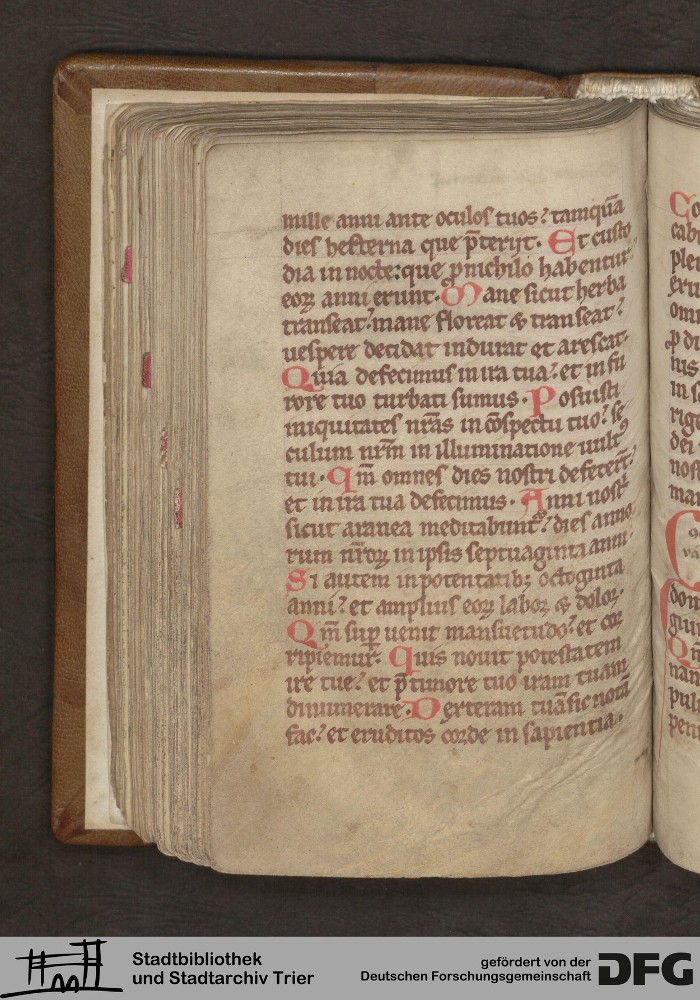 mille anni ante oculos tuos? tamquā
dies hesterna que p̄terijt. Et custo
dia in nocte: que ꝓ nichilo habentur
eoꝝ anni erunt. Mane sicut herba
transeat? mane floreat & transeat?
uespere decidat indurat et arescat.
Quia defecimus in ira tua? et in fu
rore tuo turbati sumus. Posuisti
iniquitates nr̄as in ꝯspectu tuo? se
culum nr̄m in illuminatione uult9
tui. Qm̄ omnes dies nostri defecert̄?
et in ira tua defecimus. Anni nostͥ
sicut aranea meditabunt᷑? dies anno
rum nr̄oꝝ in ipsis septuaginta anni.
Si autem in potentatib; octoginta
anni? et amplius eoꝝ laboꝛ & doloꝛ.
Qm̄ suꝑ uenit mansuetudo? et coꝛ
ripiemur. Quis nouit potestatem
ire tue? et p̄ timore tuo iram tuam
dinumerare. Dexteram tuā sic notā
fac? et eruditos corde in sapientia.
Co
cab
plen
exu
omn
ꝓ di
nis
in se
rige
dei
nost
man
Q
dom
giu
Qm̄
nan
pul
penn
Stadtbibliothek
und Stadtarchiv Trier
gefördert von der
Deutschen Forschungsgemeinschaft
DFG